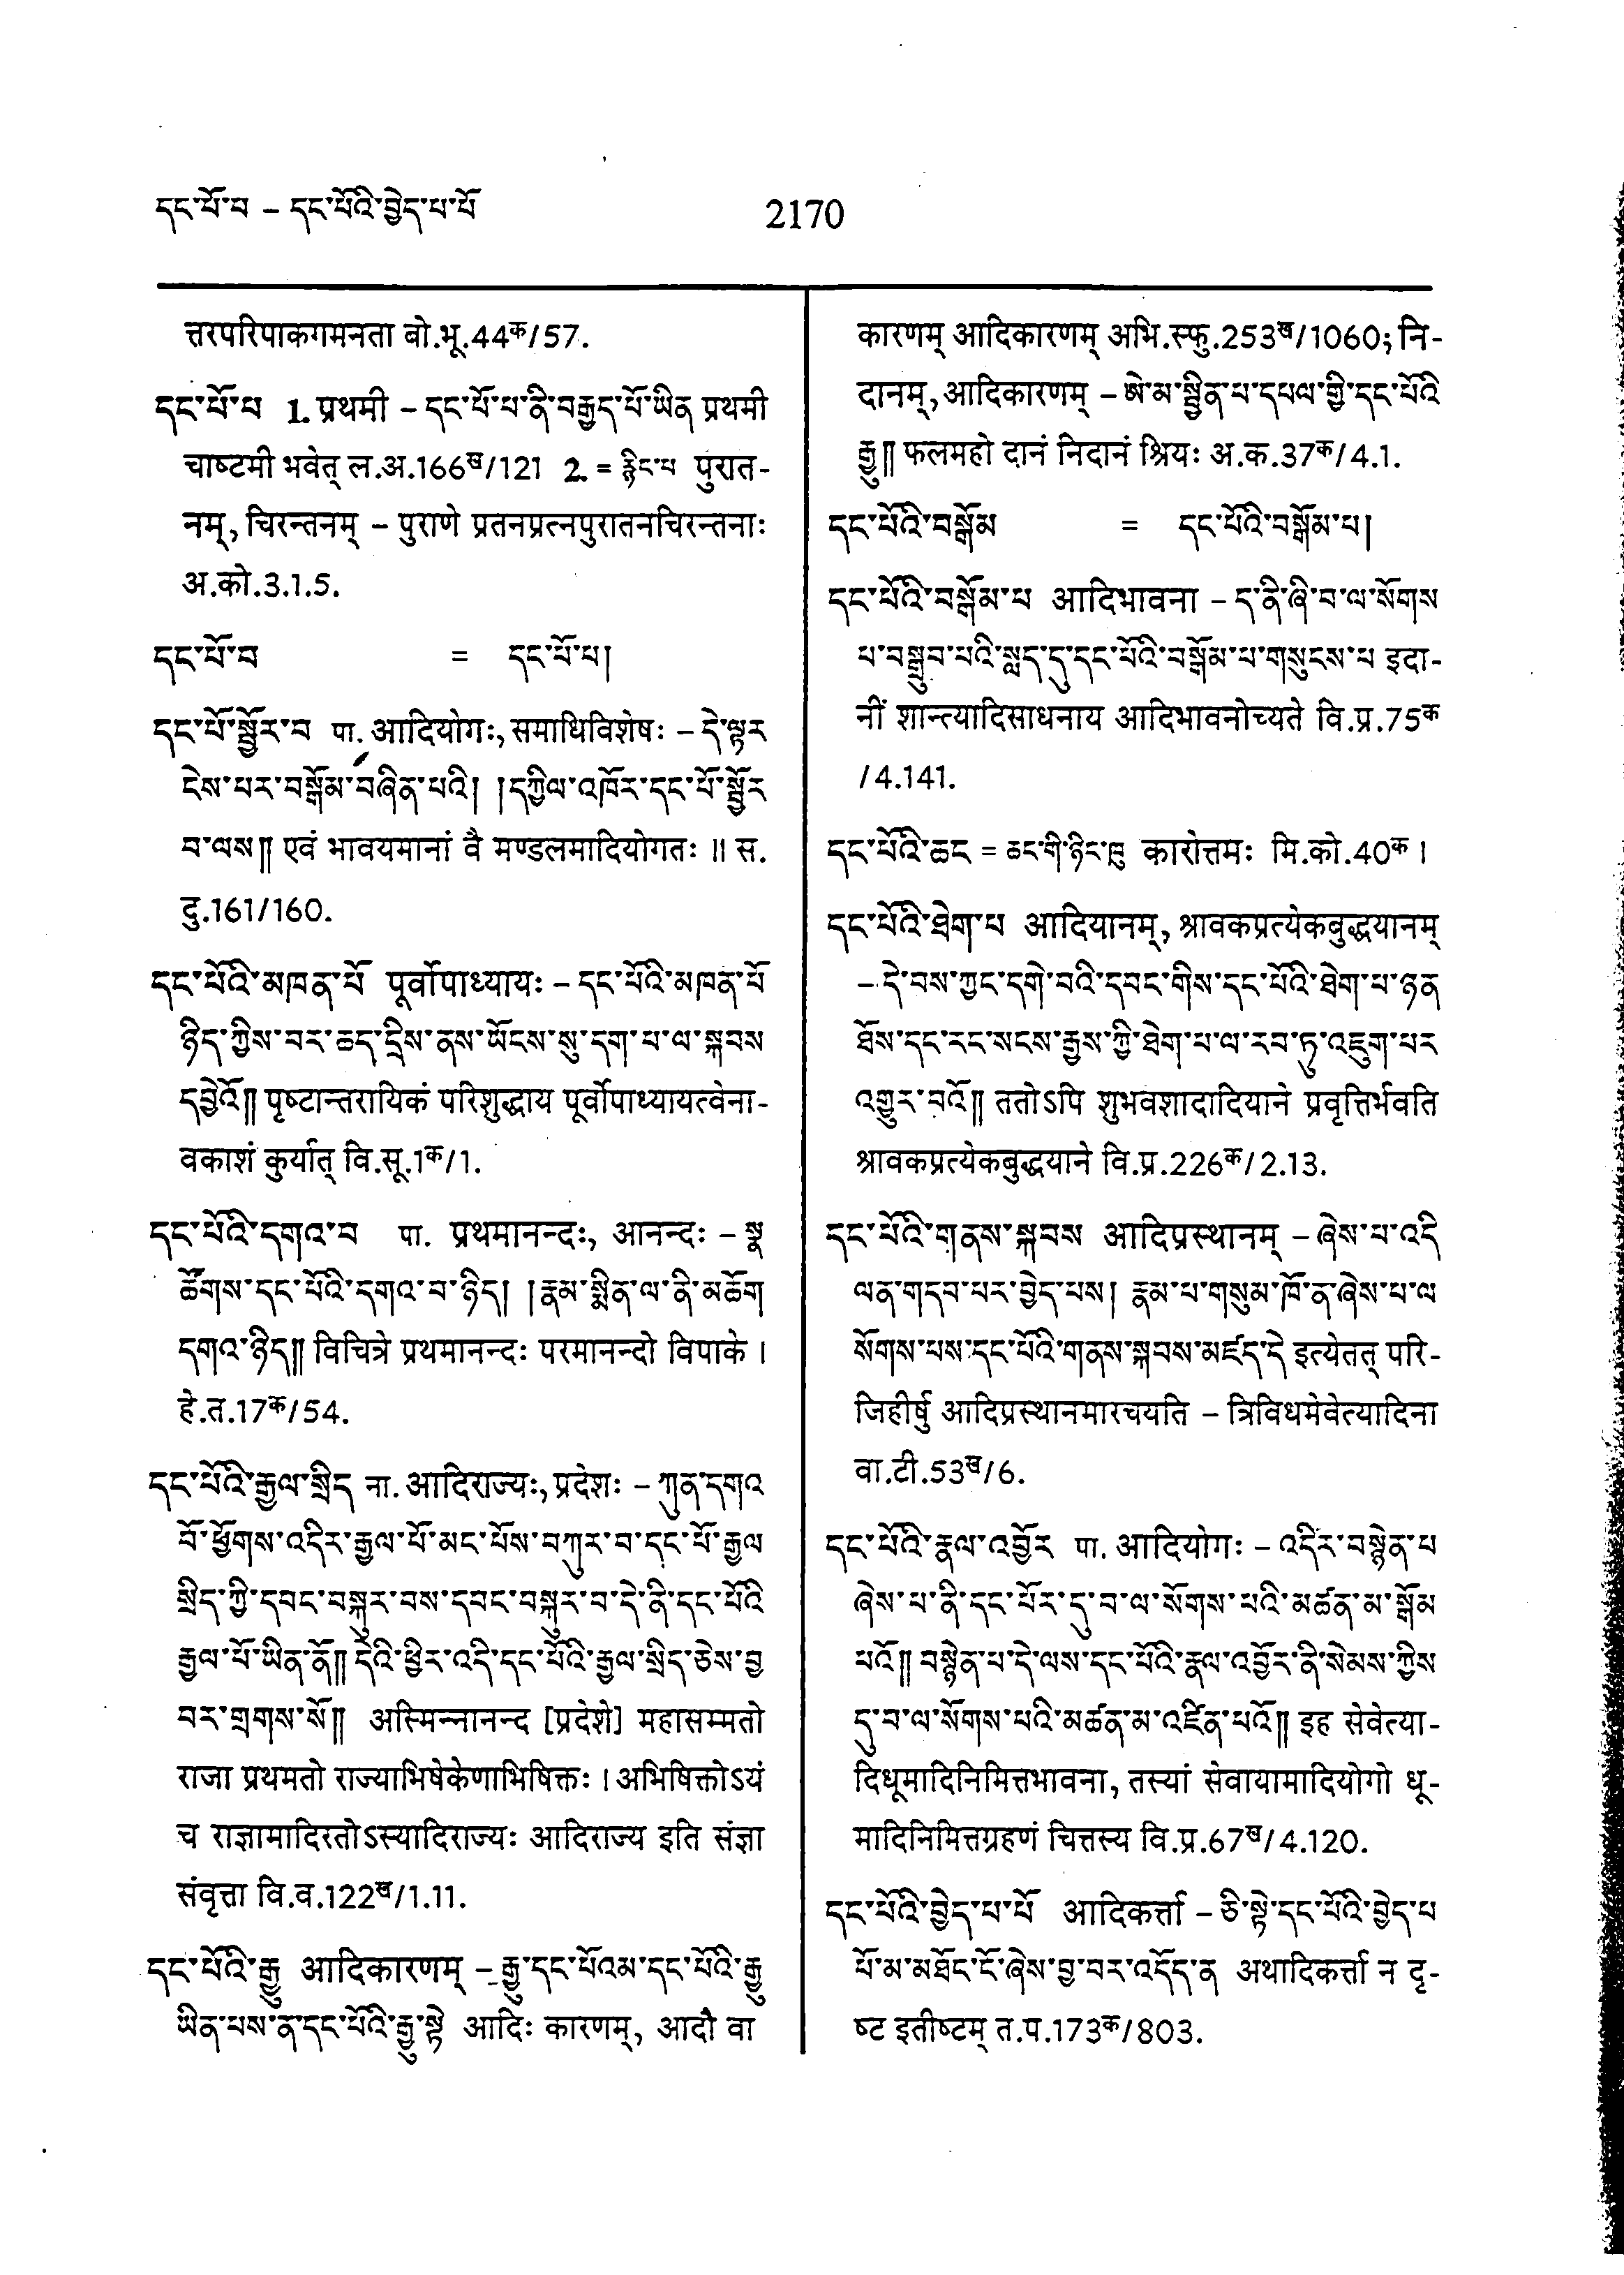 དང་པོ་བ – དང་པོའི་བྱེད་པ་པོ
2170
त्तरपरिपाकगमनता बो.भू.44क/57.
དང་པོ་པ 1. प्रथमी – དང་པོ་པ་ནི་བརྒྱད་པོ་ཡིན प्रथमी
चाष्टमी भवेत् ल.अ.166ख/121 2. = རྙིང་པ पुरात-
नम्, चिरन्तनम् – पुराणे प्रतनप्रत्नपुरातनचिरन्तनाः
अ.को.3.1.5.
དང་པོ་བ = དང་པོ་པ།
དང་པོ་སྦྱོར་བ पा. आदियोगः, समाधिविशेषः – དེ་ལྟར
ངེས་པར་བསྒོམ་བཞིན་པའི། །དཀྱིལ་འཁོར་དང་པོ་སྦྱོར
བ་ལས༎ एवं भावयमानां वै मण्डलमादियोगतः ॥ स.
दु.161/160.
དང་པོའི་མཁན་པོ पूर्वोपाध्यायः – དང་པོའི་མཁན་པོ
ཉིད་ཀྱིས་བར་ཆད་དྲིས་ནས་ཡོངས་སུ་དག་པ་ལ་སྐབས
དབྱེའོ༎ पृष्टान्तरायिकं परिशुद्धाय पूर्वोपाध्यायत्वेना-
वकाशं कुर्यात् वि.सू.1क/1.
དང་པོའི་དགའ་བ पा. प्रथमानन्दः, आनन्दः – སྣ
ཚོགས་དང་པོའི་དགའ་བ་ཉིད། །རྣམ་སྨིན་ལ་ནི་མཆོག
དགའ་ཉིད༎ विचित्रे प्रथमानन्दः परमानन्दो विपाके ।
हे.त.17क/54.
དང་པོའི་རྒྱལ་སྲིད ना. आदिराज्यः, प्रदेशः – ཀུན་དགའ
བོ་ཕྱོགས་འདིར་རྒྱལ་པོ་མང་པོས་བཀུར་བ་དང་པོ་རྒྱལ
སྲིད་ཀྱི་དབང་བསྐུར་བས་དབང་བསྐུར་བ་དེ་ནི་དང་པོའི
རྒྱལ་པོ་ཡིན་ནོ༎ དེའི་ཕྱིར་འདི་དང་པོའི་རྒྱལ་སྲིད་ཅེས་བྱ
བར་གྲགས་སོ༎ अस्मिन्नानन्द [प्रदेशे] महासम्मतो
राजा प्रथमतो राज्याभिषेकेणाभिषिक्तः । अभिषिक्तोऽयं
च राज्ञामादिरतोऽस्यादिराज्यः आदिराज्य इति संज्ञा
संवृत्ता वि.व.122ख/1.11.
དང་པོའི་རྒྱུ आदिकारणम् – རྒྱུ་དང་པོའམ་དང་པོའི་རྒྱུ
ཡིན་པས་ན་དང་པོའི་རྒྱུ་སྟེ आदिः कारणम्, आदौ वा
कारणम् आदिकारणम् अभि.स्फु.253ख/1060; नि-
दानम्, आदिकारणम् – ཨེ་མ་སྦྱིན་པ་དཔལ་གྱི་དང་པོའི
རྒྱུ༎ फलमहो दानं निदानं श्रियः अ.क.37क/4.1.
དང་པོའི་བསྒོམ = དང་པོའི་བསྒོམ་པ།
དང་པོའི་བསྒོམ་པ आदिभावना – ད་ནི་ཞི་བ་ལ་སོགས
པ་བསྒྲུབ་པའི་སླད་དུ་དང་པོའི་བསྒོམ་པ་གསུངས་པ इदा-
नीं शान्त्यादिसाधनाय आदिभावनोच्यते वि.प्र.75क
/4.141.
དང་པོའི་ཆང = ཆང་གི་ཉིང་ཁུ कारोत्तमः मि.को.40क ।
དང་པོའི་ཐེག་པ आदियानम्, श्रावकप्रत्येकबुद्धयानम्
– དེ་བས་ཀྱང་དགེ་བའི་དབང་གིས་དང་པོའི་ཐེག་པ་ཉན
ཐོས་དང་རང་སངས་རྒྱས་ཀྱི་ཐེག་པ་ལ་རབ་ཏུ་འཇུག་པར
འགྱུར་བའོ༎ ततोऽपि शुभवशादादियाने प्रवृत्तिर्भवति
श्रावकप्रत्येकबुद्धयाने वि.प्र.226क/2.13.
དང་པོའི་གནས་སྐབས आदिप्रस्थानम् – ཞེས་པ་འདི
ལན་གདབ་པར་བྱེད་པས། རྣམ་པ་གསུམ་ཁོ་ན་ཞེས་པ་ལ
སོགས་པས་དང་པོའི་གནས་སྐབས་མཛད་དེ इत्येतत् परि-
जिहीर्षु आदिप्रस्थानमारचयति – त्रिविधमेवेत्यादिना
वा.टी.53ख/6.
དང་པོའི་རྣལ་འབྱོར पा. आदियोगः – འདིར་བསྙེན་པ
ཞེས་པ་ནི་དང་པོར་དུ་བ་ལ་སོགས་པའི་མཚན་མ་སྒོམ
པའོ༎ བསྙེན་པ་དེ་ལས་དང་པོའི་རྣལ་འབྱོར་ནི་སེམས་ཀྱིས
དུ་བ་ལ་སོགས་པའི་མཚན་མ་འཛིན་པའོ༎ इह सेवेत्या-
दिधूमादिनिमित्तभावना, तस्यां सेवायामादियोगो धू-
मादिनिमित्तग्रहणं चित्तस्य वि.प्र.67ख/4.120.
དང་པོའི་བྱེད་པ་པོ आदिकर्त्ता – ཅི་སྟེ་དང་པོའི་བྱེད་པ
པོ་མ་མཐོང་ངོ་ཞེས་བྱ་བར་འདོད་ན अथादिकर्त्ता न दृ-
ष्ट इतीष्टम् त.प.173क/803.